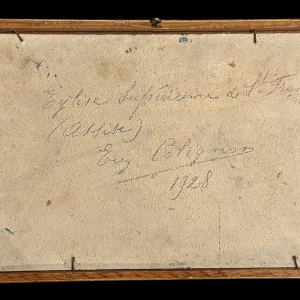 Eglise Supérieure de St Fran
(Assise)
Eug. Colignon
1928